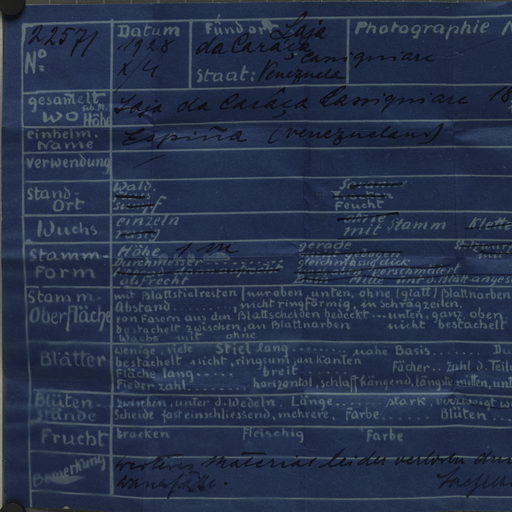 22571
Nº:
Datum
1928
X/4
Fundort Laja
da Caráca
Cassiquiare
Staat: Venezuela
Photographie N
gesamelt
wo
Höhe
Laja da Caráca Cassiquiare 18
einheim.
Name
Espiña (venezuelan)
Verwendung
Stand-
Ort
Wald.
Feucht
Wuchs
einzeln
ohne
mit Stamm
Klette
Stamm-
Form
Höhe 1 m
gerade
aufrecht
Stamm-
Oberfläche
mit Blattstielresten / nur oben, unten, ohne / glatt / Blattnarben
Abstand........, nicht ringförmig, in Schrägzeilen,
von Fasern aus den Blattscheiden bedeckt---unten, ganz oben.
bestachelt zwischen, an Blattnarben nicht bestachelt
Wachs mit ohne
Blätter
wenige, viele Stiel lang........ nahe Basis........
bestachelt nicht, ringsum, an Kanten
Fläche lang...... breit...... Fächer.. zahl d. Teil
Fiederzahl........ horizontal, schlaff hängend, längste mitten, unt
Blüten-
stände
zwischen, unter d. Wedeln. Länge...... stark, verzweigt w
Scheide fast einschliessend, mehrere, Farbe...... Blüten......
Frucht
trocken Fleischig Farbe
Bemerkung
weiteres Material leider verloren